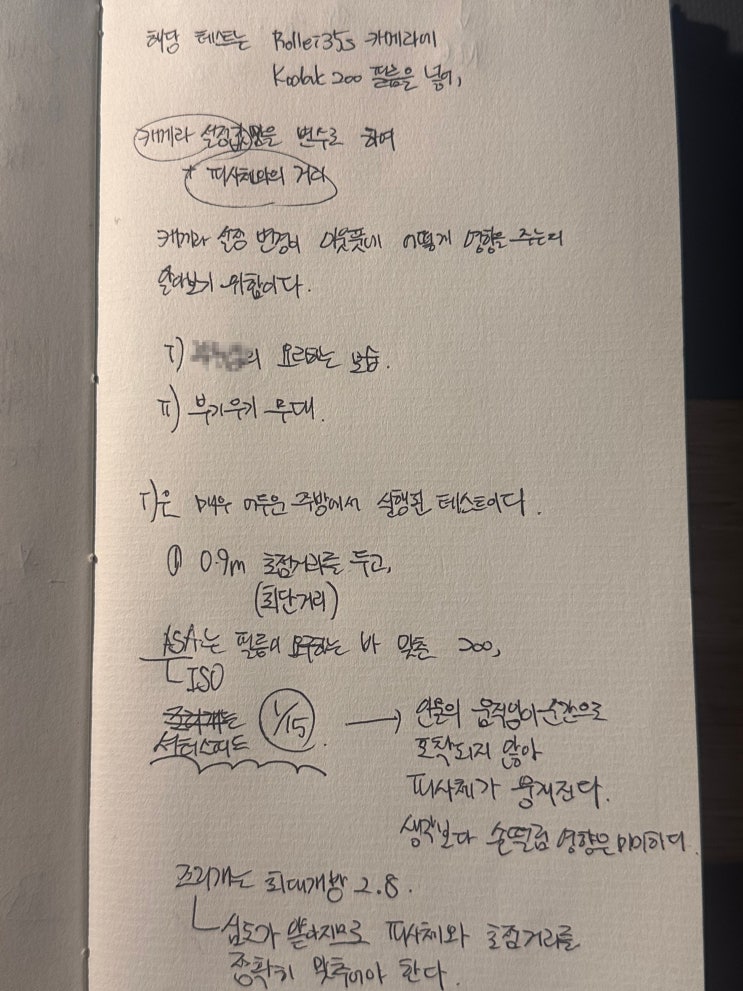 해당 테스트는 Rollei35s 카메라에
Kodak 200 필름을 넣어,
카메라 설정값만을 변수로 하여
+ 피사체와의 거리
카메라 설정 변경이 아웃풋에 어떻게 영향을 주는지
알아보기 위함이다.
I) 의 요리하는 모습.
II) 부기우기 무대.
I)은 매우 어두운 주방에서 실행된 테스트이다.
① 0.9m 초점거리를 두고,
(최단거리)
ASA는 필름이 요구하는 바 맞춘 200,
ISO
조리개는
셔터스피드 1/15 . → 인물의 움직임이 순간으로
포착되지 않아
피사체가 뭉개진다.
생각보다 손떨림 영향은 미미하다.
조리개는 최대개방 2.8.
심도가 얕아지므로 피사체와 초점거리를
정확히 맞추어야 한다.